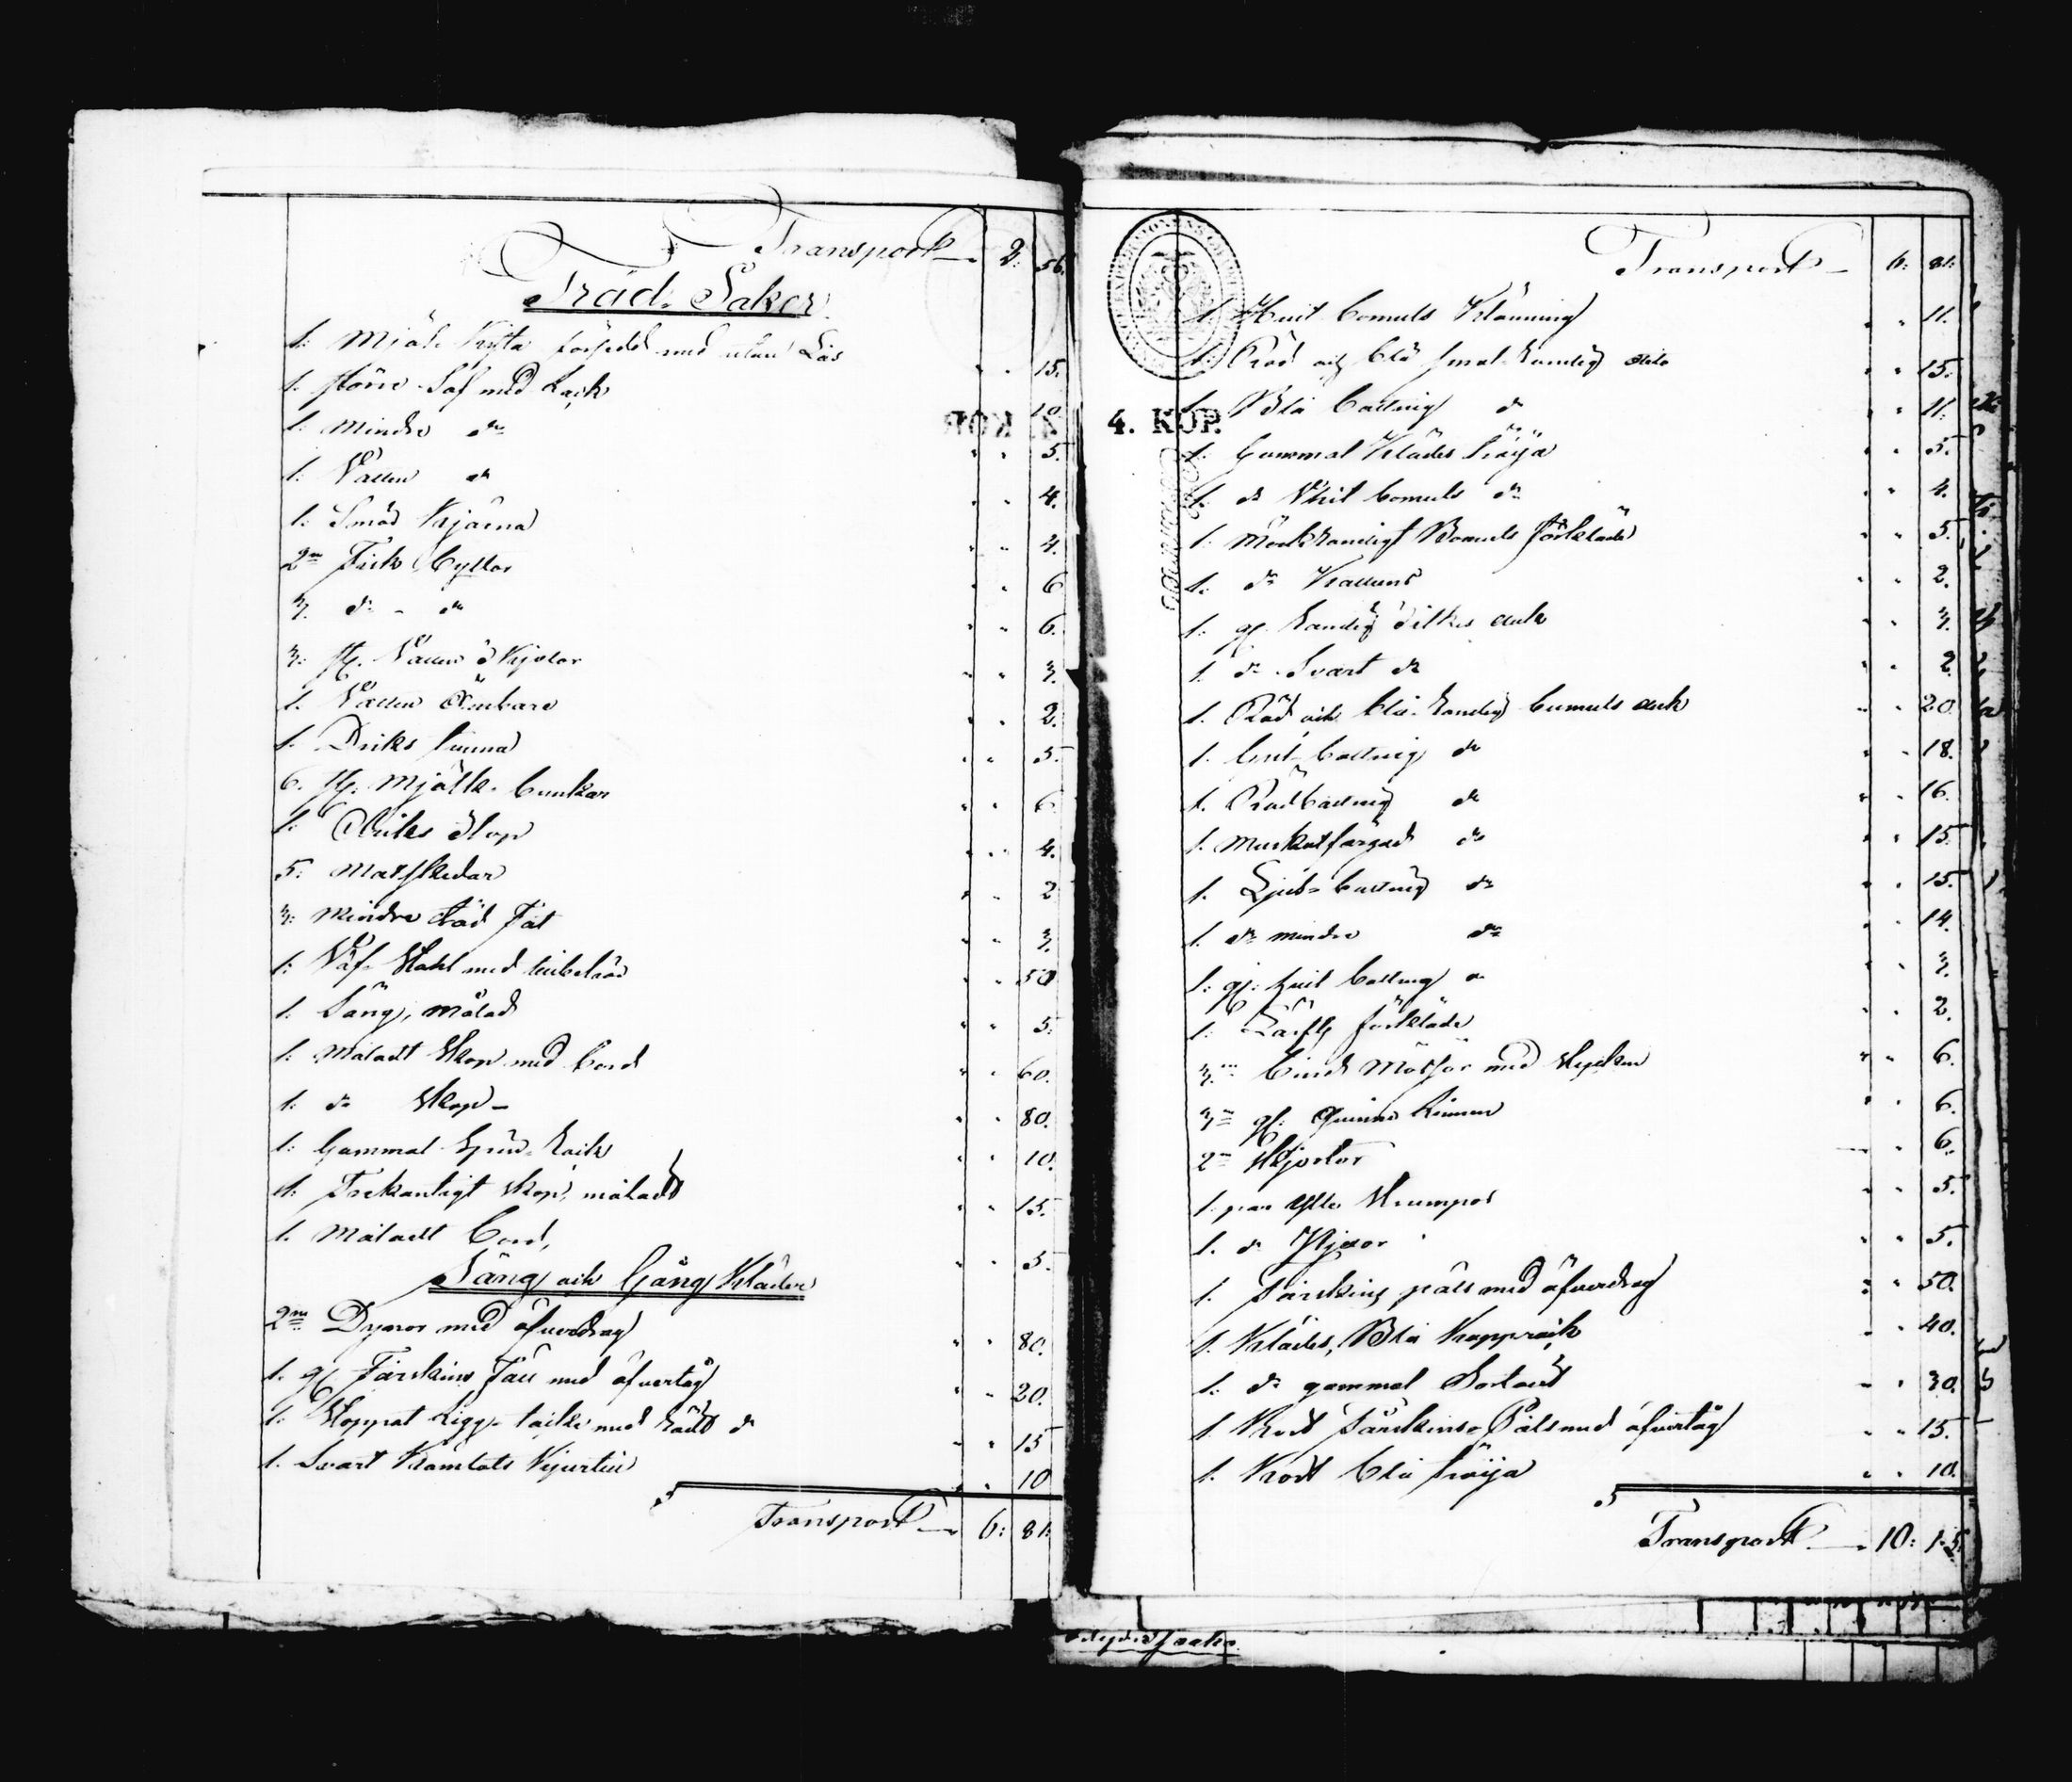 Transport 2: 56.
Träd. Saker.
1: Mjöl. Kista försedd med utan Lås " " 15.
1. större Saf med Lock " " 10.
1. Mindre do " " 5.
1. Vatten do " " 4.
1: Smör Kjärna " " 4.
2ne Fisk Byttor " " 6
3. do - do " " 6.
3: st. Vatten " " 3.
1. Vatten Ämbare " " 2.
1. Dricks " " 5.
6. st. Mjölk. Bunkar " " 6
1: Dricks Stop " " 4.
5: Matskedar " " 2
3: Mindre träd Fat " " 3.
1: Väf. Stohl med " " 50
1. Säng, målad " " 5.
1: Måladt Skop med Bord " " 60.
1: do Skop - " " 80.
1: Gammal Spin. Rock " " 10.
1: Trekantigt Skop, måladt " " 15.
1. Måladt Bord, " " 5.
Säng och Gång Kläder
2ne Dynor med öfverdrag " " 80.
1. gl. Fårskins Fäll med öfvertåg " " 20.
1: Stoppat Ligg-täcke med do " " 15
1. Svart Kamlots Kjortel " " 10
Transport 6: 81.
Transport 6: 81.
1. Hvit bomuls Klänning " " 11.
1: Röd och blå smal. Randig dito " " 15.
4. KOP.
1. Blå Bottnig do " " 11.
1. Gammal Klädes tröija " " 5.
1. do Hvit bomuls do " " 4.
1. Mörkrandigt Bomuls förkläde " " 5.
1. do Kattuns " " 2.
1: gl. Randig Silkes duk " " 3.
1. do Svart do " " 2.
1. Röd och blå. Randig bomuls duk " " 20.
1. Gul Bottnig do " " 18.
1. Rödbottnig do " " 16.
1. Muskotfärgad do " " 15.
1. Ljus. bottnig do " " 15.
1. do mindre do " " 14.
1: gl: hvit bottnig do " " 3.
1: Lärfts förkläde " " 2.
3ne Bind Mössor med Stycken " " 6.
3ne gl: " " 6.
2ne Skjortor " " 6.
1. par Ylle Strumpor " " 5.
1. do " " 5.
1. Fårskins päls med öfverdrag " " 50.
1. Klädes, Blå Kapprock " " 40.
1: do gammal Sortout " " 30.
1. Kort Fårskins Päls med öfvertåg " " 15.
1. Kort blå tröija " " 10.
Transport 10: 15.